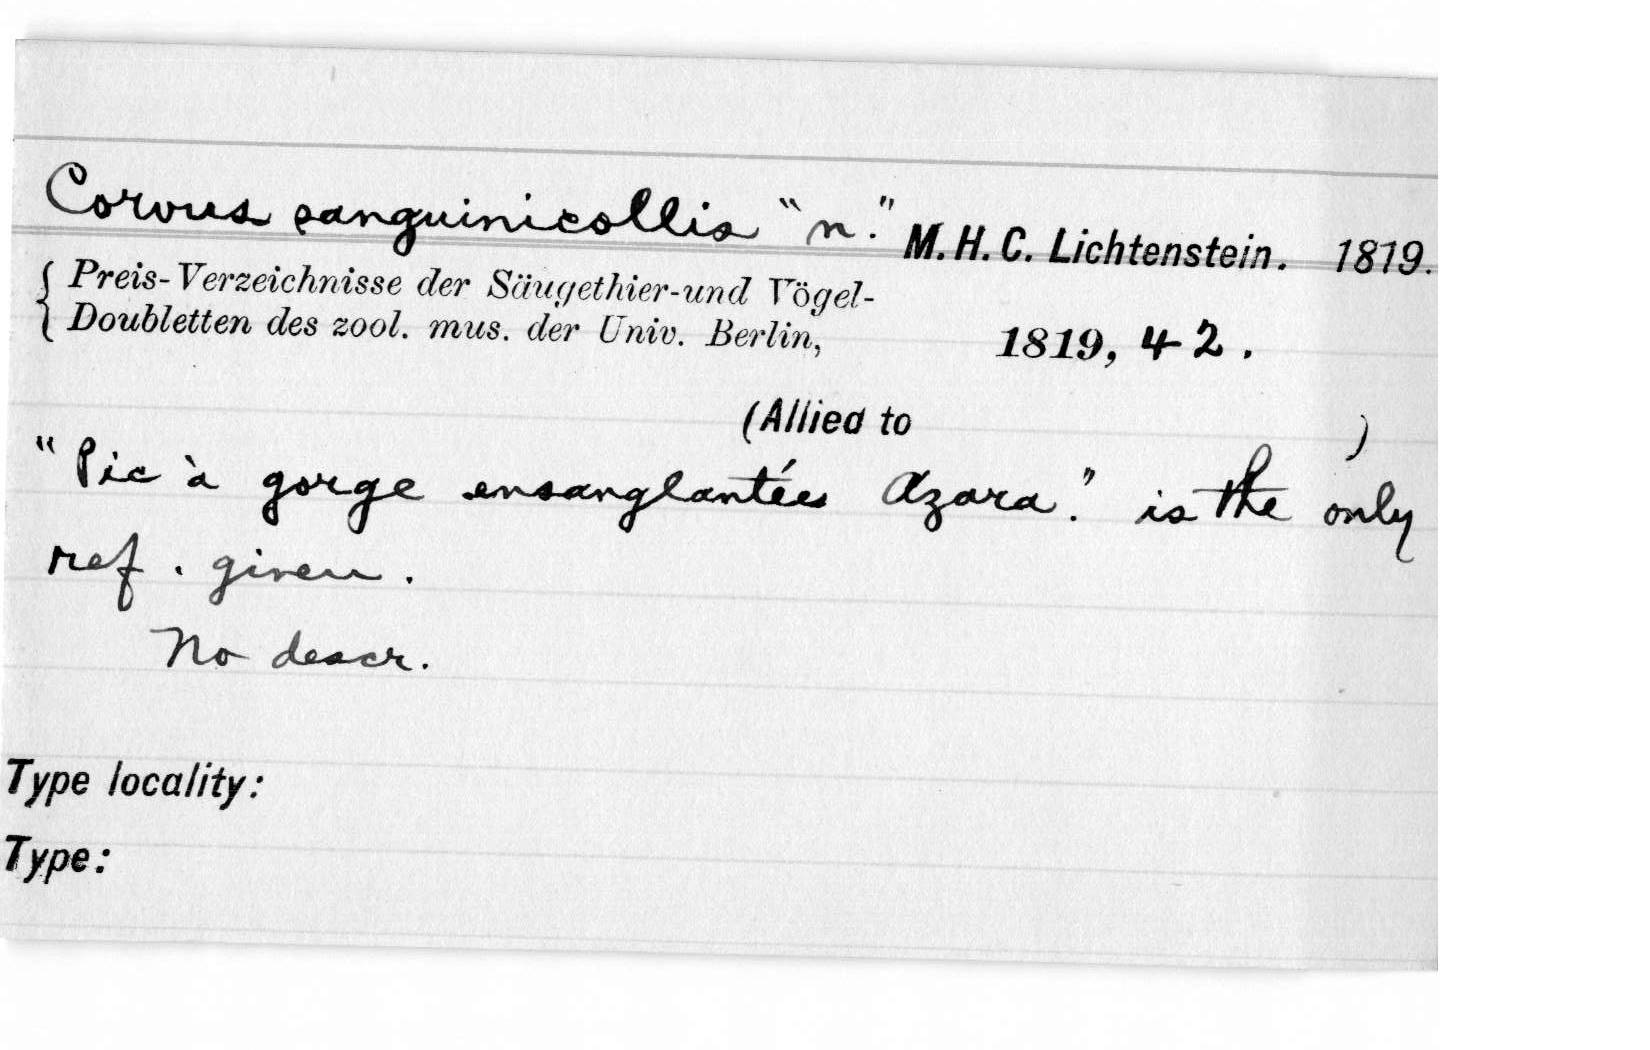 Corvus sanguinicollis "n." M. H. C. Lichtenstein. 1819.
Preis-Verzeichnisse der Säugethier-und Vögel-
Doubletten des zool. mus. der Univ. Berlin, 1819, 42.
(Allied to )
"Pic à gorge ensanglantées Azara." is the only
ref. given.
No descr.
Type locality:
Type: